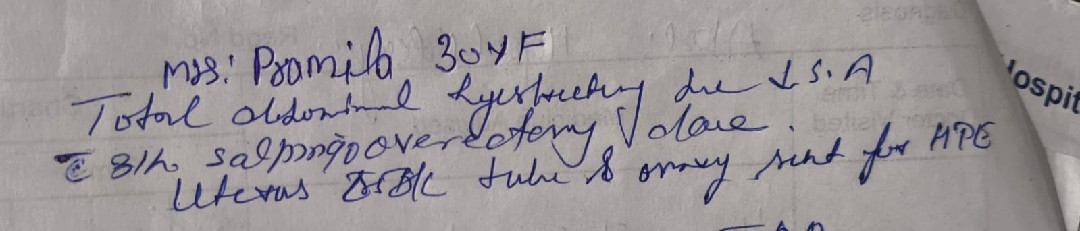 Mrs: Pramila 30 Y F
Total abdominal hysterectomy due ↓ S.A
c̄ B/L salpingo overectomy done.
Uterus B/L tube & ovary sent for HPE
ospit